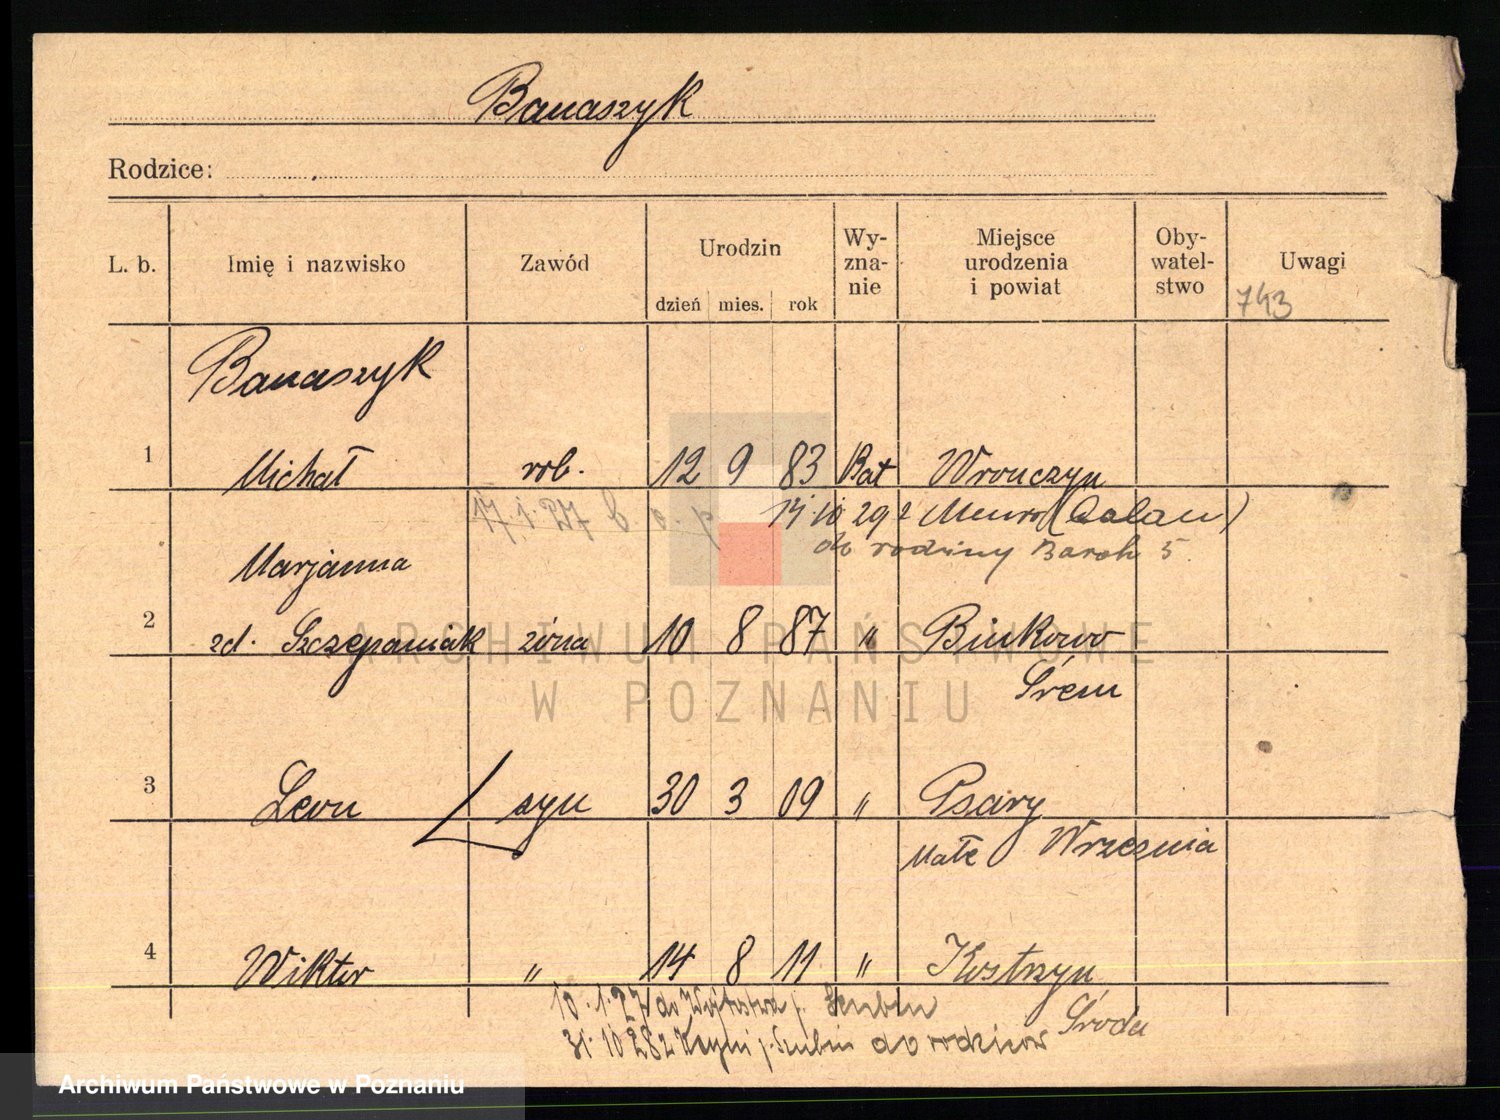 Banaszyk
Rodzice:
L. b. Imię i nazwisko Zawód Urodzin Wy-zna-nie Miejsce urodzenia i powiat Oby-watel-stwo Uwagi
dzień mies. rok
743
Banaszyk
1 Michał rob. 12 9 83 Kat Wronczyn
17.1.27 14.10 29 z (Calau)
do rodziny 5
Marjanna
2 zd. Szczepaniak żona 10 8 87 " Binkowo
Śrem
3 Leon syn 30 3 09 " Psary
Małe Września
4 Wiktor " 14 8 11 " Kostrzyn
Środa
10.1.27 do p. Szubin
31.10 28 z Kcyni p. Szubin do rodziców
ARCHIWUM PAŃSTWOWE
W POZNANIU
Archiwum Państwowe w Poznaniu